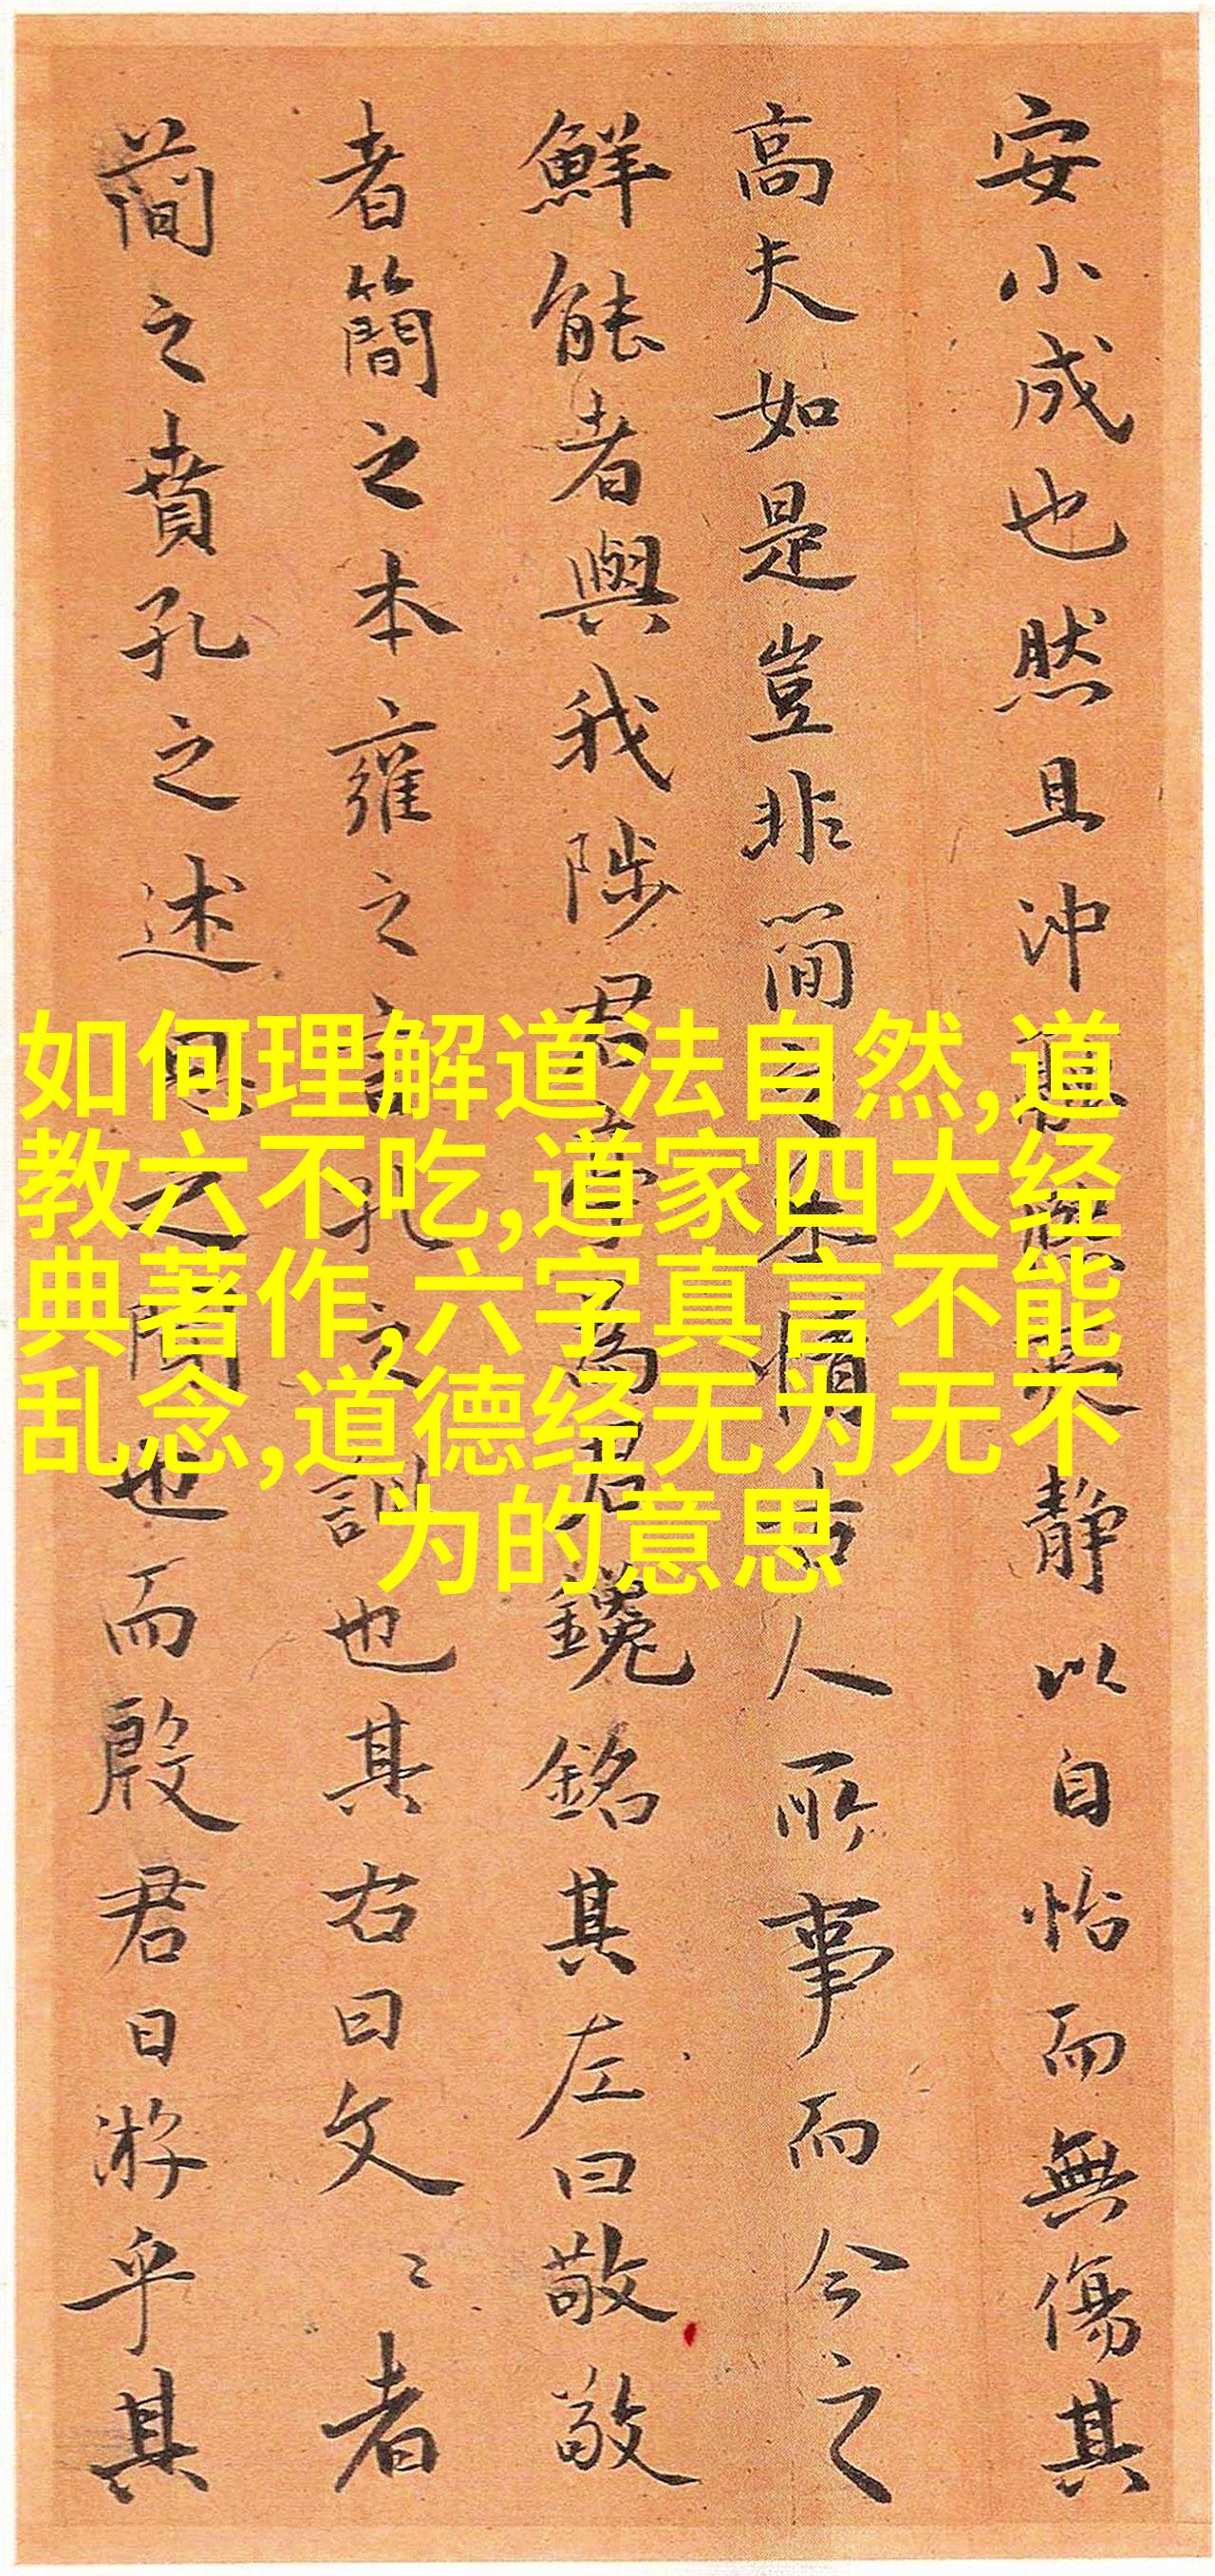 安小成也然且沖靜以自怡而無傷其
高夫如是豈非簡之本情古人所事而今之
鮮能者與我陟君亭為君鑱銘其左曰敬敬
者簡之本雍之言孔之訓也其右曰文〻者
簡之賁孔之述之間也而殷君日游乎其
如何理解道法自然,道
教六不吃,道家四大经
典著作,六字真言不能
乱念,道德经无为无不
为的意思